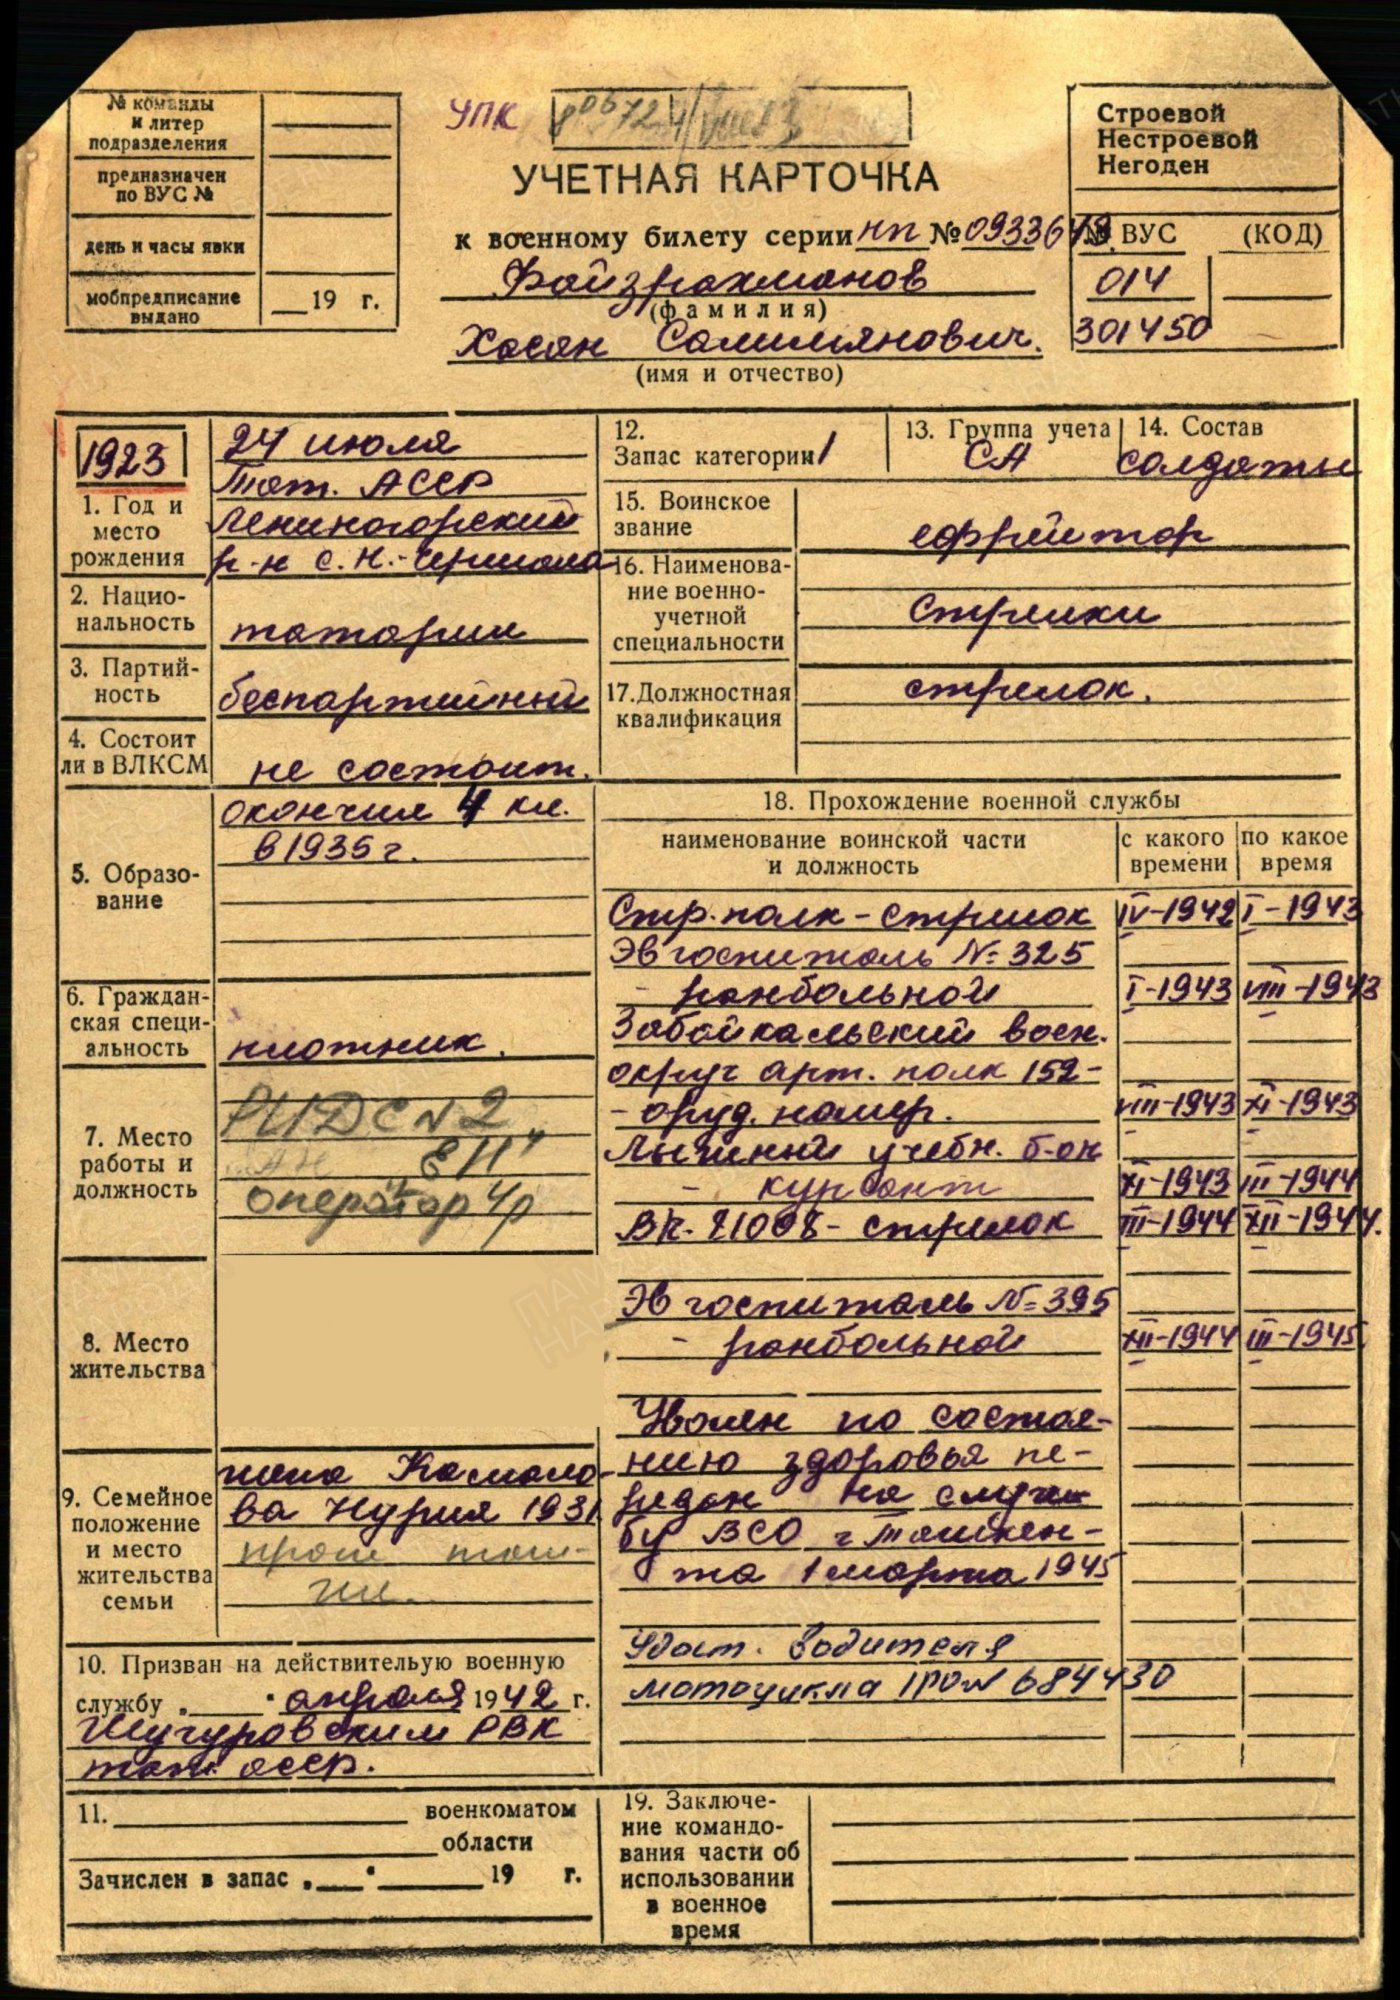 № команды
и литер
подразделения
предназначен
по ВУС №
день и часы явки
мобпредписание
выдано
19 г.
УПК
УЧЕТНАЯ КАРТОЧКА
к военному билету серии НП № 0933648
Файзрахманов
(фамилия)
Хасан Салимянович.
(имя и отчество)
Строевой
Нестроевой
Негоден
№ ВУС (КОД)
014
301450
1923
1. Год и
место
рождения
24 июля
Тат. АССР
Лениногорский
р-н с. Н.-Чершила
2. Нацио-
нальность
татарин
3. Партий-
ность
беспартийный
4. Состоит
ли в ВЛКСМ
не состоит.
5. Образо-
вание
окончил 4 кл.
в 1935 г.
6. Граждан-
ская специ-
альность
плотник.
7. Место
работы и
должность
№ 2
оператор 4р
8. Место
жительства
9. Семейное
положение
и место
жительства
семьи
жена Камало-
ва Нурия 1931
10. Призван на действительую военную
службу „ “ апреля 1942 г.
Шугуровским РВК
тат. АССР.
11. военкоматом
области
Зачислен в запас „ “ 19 г.
12.
Запас категории 1
13. Группа учета
СА
14. Состав
солдаты
15. Воинское
звание
ефрейтор
16. Наименова-
ние военно-
учетной
специальности
Стрелки
17. Должностная
квалификация
стрелок.
18. Прохождение военной службы
наименование воинской части
и должность
с какого
времени
по какое
время
Стр. полк - стрелок IV-1942 I-1943
Эвгоспиталь № 325
- ранбольной I-1943 VIII-1943
Забайкальский воен.
округ арт. полк 152-
- оруд. номер. VIII-1943 XI-1943
Лыжный учебн. б-он
- курсант XI-1943 III-1944
ВЧ. 21008 - стрелок III-1944 XII-1944.
Эвгоспиталь № 395
- ранбольной XII-1944 III-1945.
Уволен по состоя-
нию здоровья пе-
редан на служ
бу ВСО г Ташкен-
та 1 марта 1945
Удост. водителя
мотоцикла 684430
19. Заключе-
ние командо-
вания части об
использовании
в военное
время